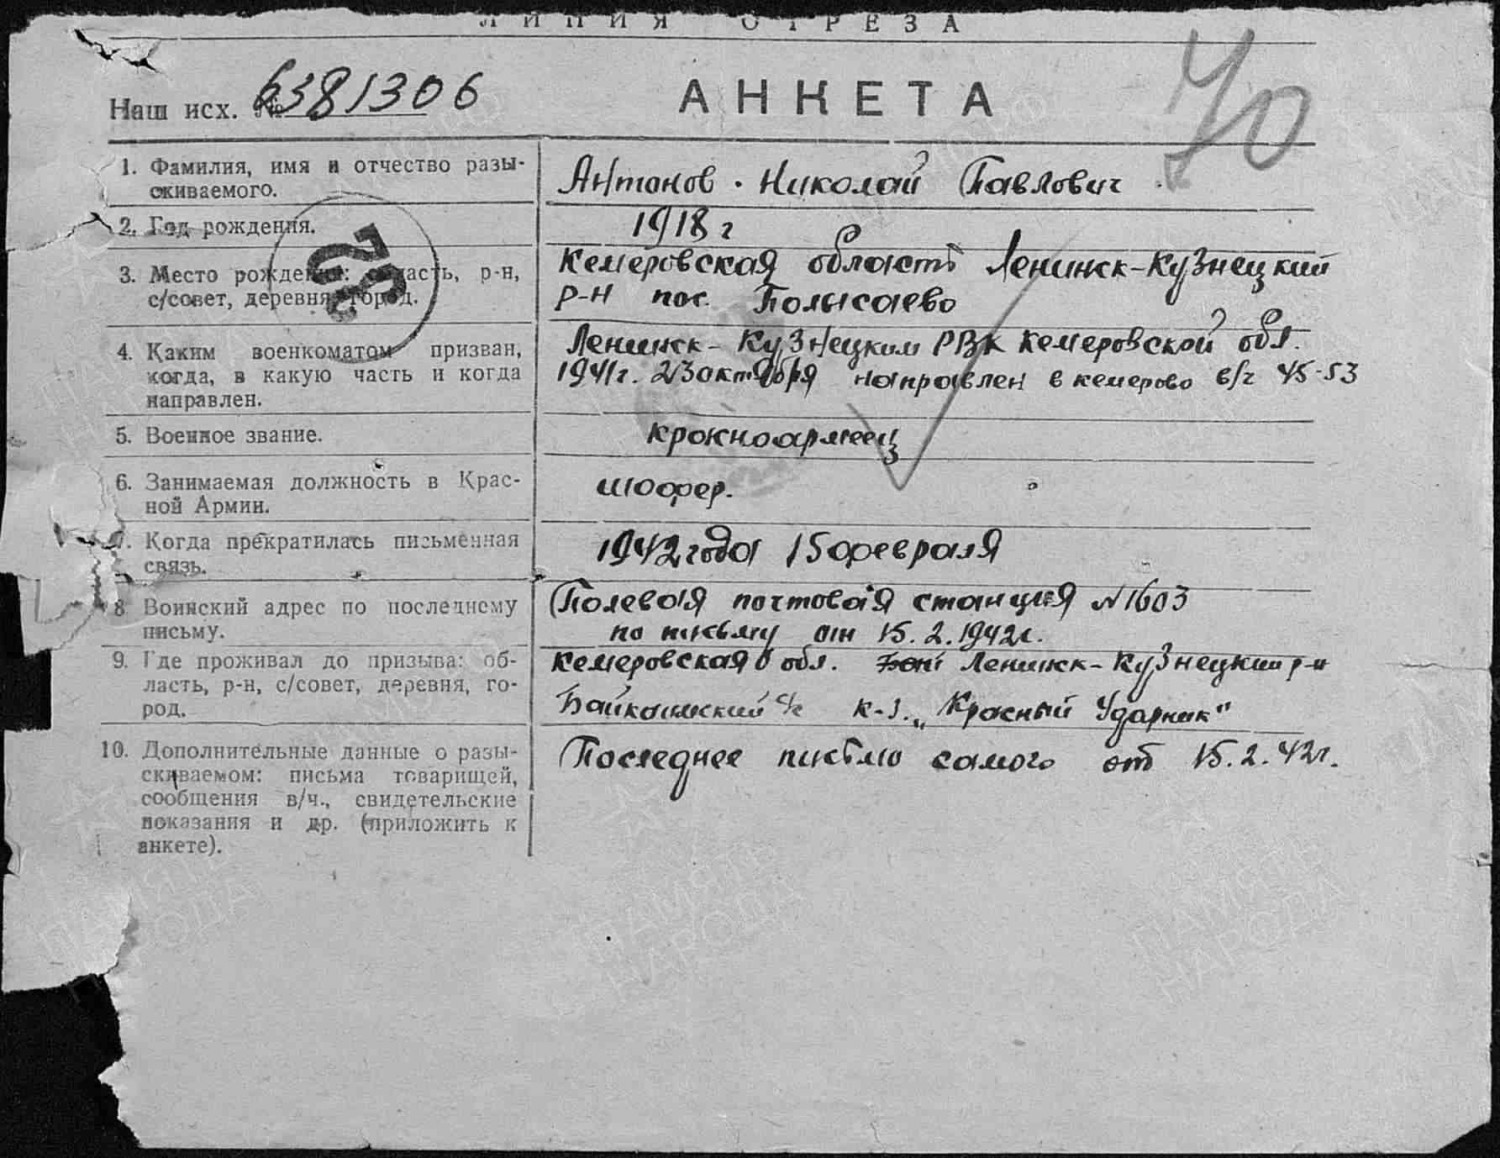 ЛИНИЯ ОТРЕЗА
Наш исх. № 6381306
АНКЕТА
70
1. Фамилия, имя и отчество разы-
скиваемого.
Антонов Николай Павлович
2. Год рождения.
1918 г
3. Место рождения: область, р-н,
с/совет, деревня, город.
Кемеровская область Ленинск-Кузнецкий
р-н пос. Полысаево
4. Каким военкоматом призван,
когда, в какую часть и когда
направлен.
Ленинск-Кузнецким РВК Кемеровской обл.
1941г. 23 октября направлен в кемерово в/ч 45-53
5. Военное звание.
красноармеец
6. Занимаемая должность в Крас-
ной Армии.
шофер.
7. Когда прекратилась письменная
связь.
1942 года 15 февраля
8 Воинский адрес по последнему
письму.
Полевая почтовая станция №1603
по письму от 15.2.1942г.
9. Где проживал до призыва: об-
ласть, р-н, с/совет, деревня, го-
род.
Кемеровская обл. Ленинск-Кузнецкий р-н
Байкаимский с/с к-з. „Красный Ударник"
10. Дополнительные данные о разы-
скиваемом: письма товарищей,
сообщения в/ч., свидетельские
показания и др. (приложить к
анкете).
Последнее письмо самого от 15.2.42г.
ПАМЯТЬ
НАРОДА
ПАМЯТЬ
НАРОДА
ПАМЯТЬ
НАРОДА